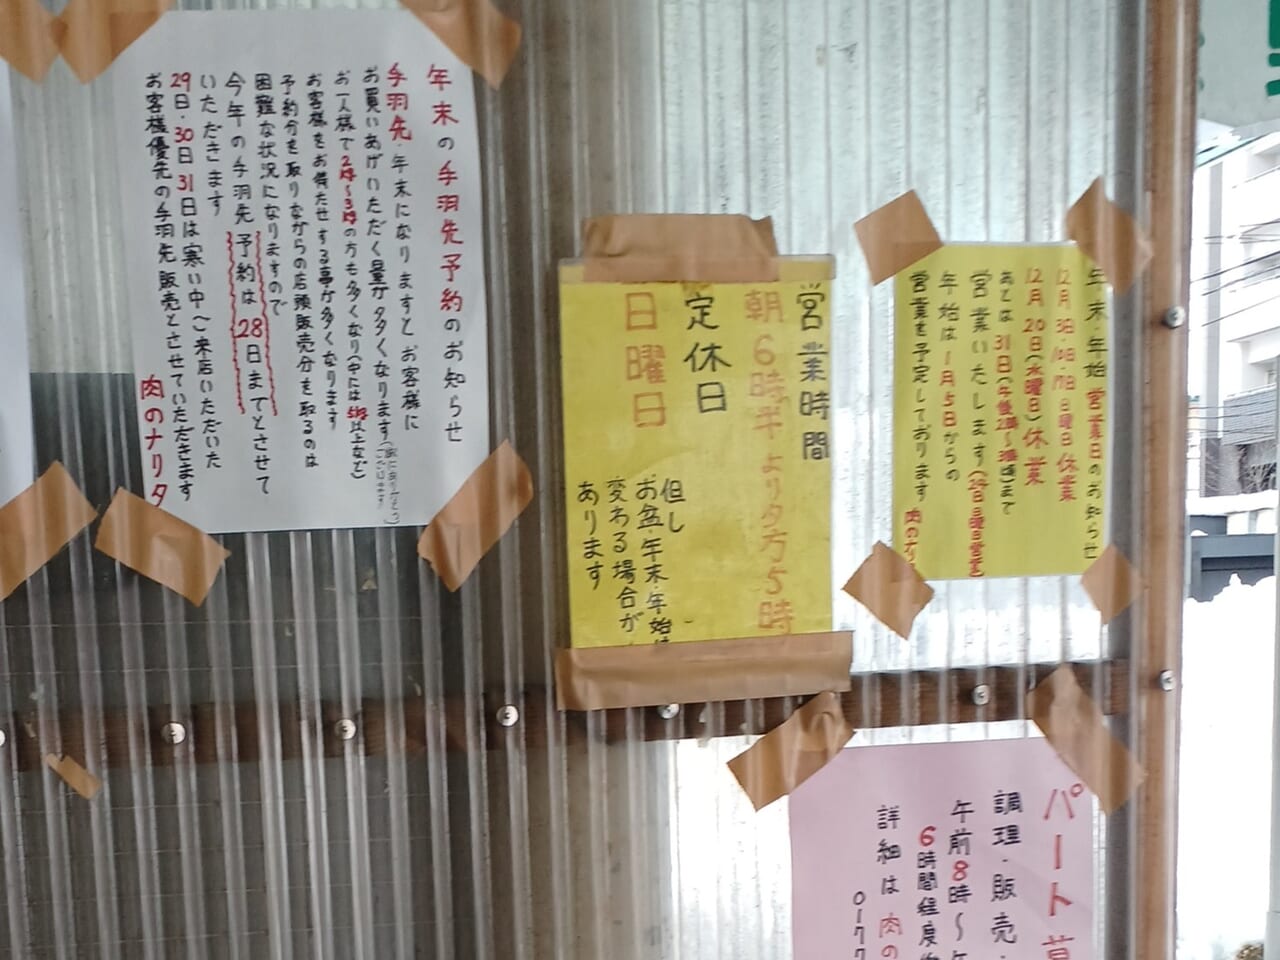 年末の手羽先予約のお知らせ
手羽先・年末になりますと お客様に
お買いあげいただく量が多くなります
お一人様で2㎏〜3㎏の方も多くなり(中には5㎏以上など)
お客様をお待たせする事が多くなります
予約分を取りながらの店頭販売分を取るのは
困難な状況になりますので
今年の手羽先 予約は28日までとさせて
いただきます
29日・30日31日は寒い中ご来店いただいた
お客様優先の手羽先販売とさせていただきます
肉のナリタ
営業時間
朝6時半より夕方5時
定休日
日曜日
但し
お盆・年末・年始は
変わる場合が
あります
年末・年始 営業日のお知らせ
12月 3日・10日・17日 日曜日 休業
12月 20日(水曜日)休業
あとは 31日(午後2時〜3時頃)まで
営業いたします(24日日曜日営業)
年始は1月5日からの
営業を予定しております
肉のナリ
パート
調理・販売・
午前8時〜午
6時間程度
詳細は 肉の
0177